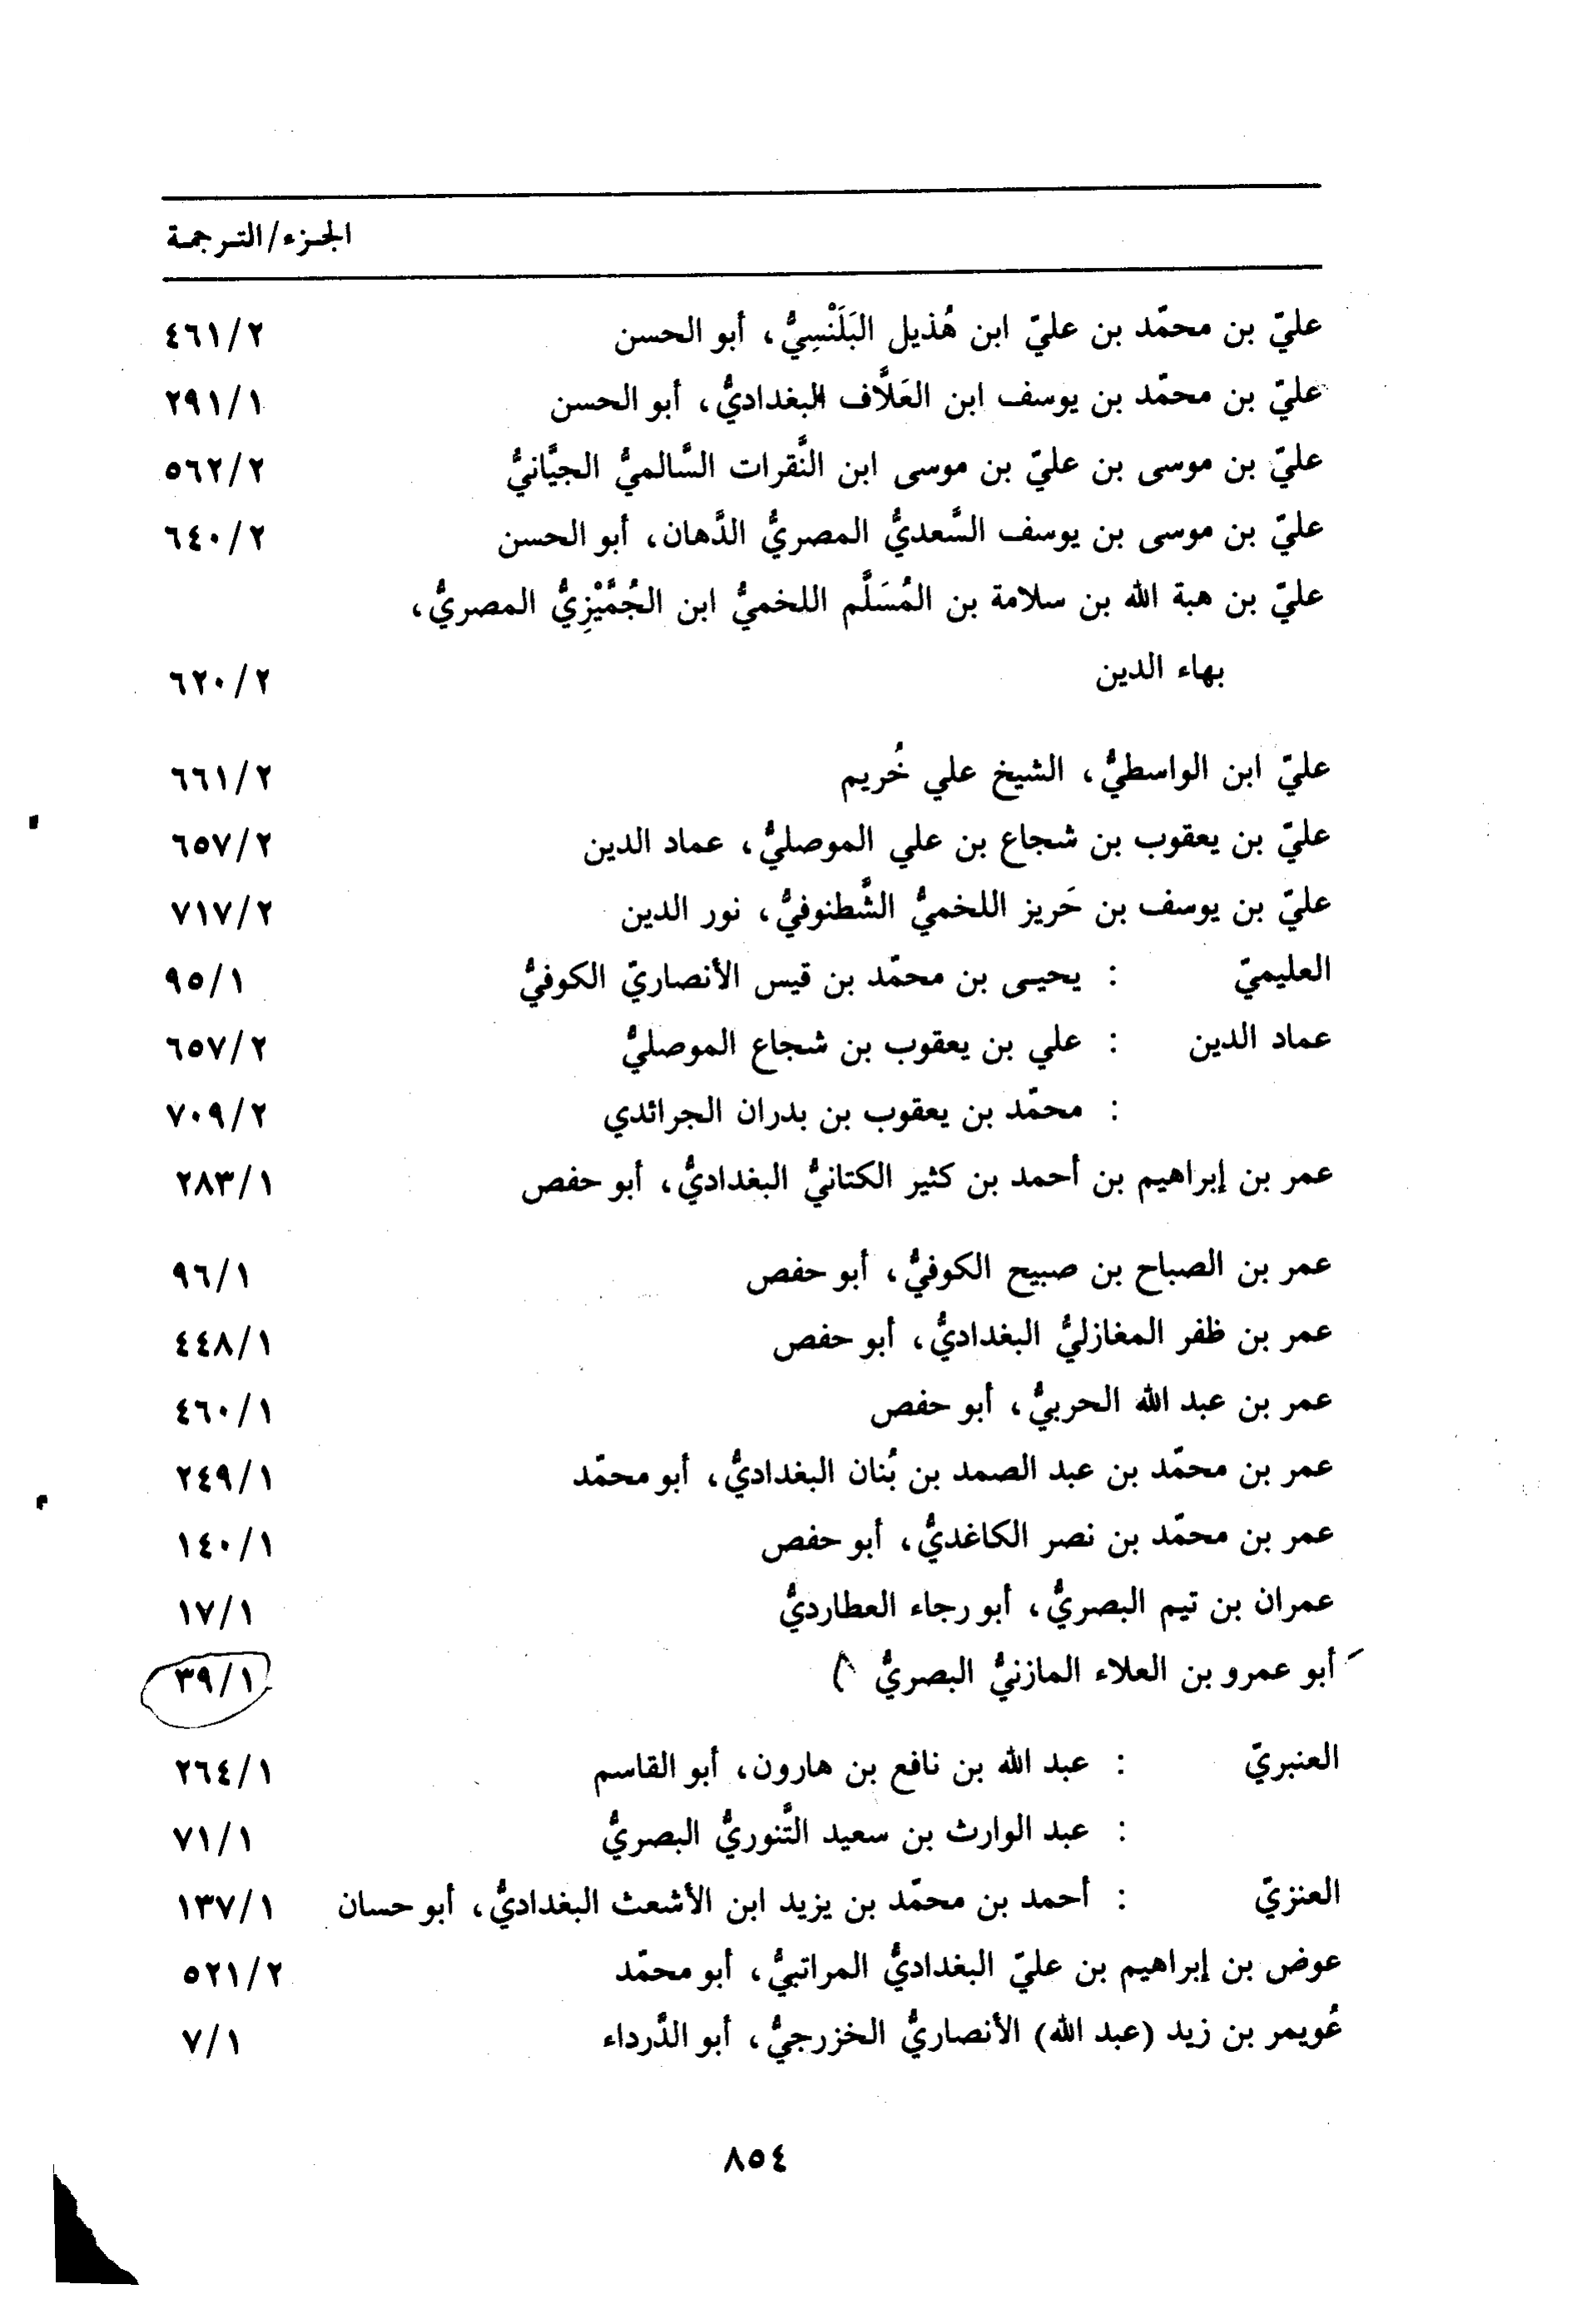 الجـزء/التـرجمـة
عليّ بن محمّد بن عليّ ابن هُذيل البَلَنْسِيُّ، أبو الحسن ٤٦١/٢
عليّ بن محمّد بن يوسف ابن العَلَّاف البغداديُّ، أبو الحسن ٢٩١/١
عليّ بن موسى بن عليّ بن موسى ابن النَّقرات السَّالميُّ الجيَّانيُّ ٥٦٢/٢
عليّ بن موسى بن يوسف السَّعديُّ المصريُّ الدَّهان، أبو الحسن ٦٤٠/٢
عليّ بن هبة الله بن سلامة بن المُسَلَّم اللخميُّ ابن الجُمَّيْزِيُّ المصريُّ،
بهاء الدين ٦٢٠/٢
عليّ ابن الواسطيُّ، الشيخ علي خُريم ٦٦١/٢
عليّ بن يعقوب بن شجاع بن علي الموصليُّ، عماد الدين ٦٥٧/٢
عليّ بن يوسف بن حَريز اللخميُّ الشَّطنوفيُّ، نور الدين ٧١٧/٢
العليميّ : يحيـى بن محمّد بن قيس الأنصاريّ الكوفيُّ ٩٥/١
عماد الدين : علي بن يعقوب بن شجاع الموصليُّ ٦٥٧/٢
: محمّد بن يعقوب بن بدران الجرائدي ٧٠٩/٢
عمر بن إبراهيم بن أحمد بن كثير الكتانيُّ البغداديُّ، أبو حفص ٢٨٣/١
عمر بن الصباح بن صبيح الكوفيُّ، أبو حفص ٩٦/١
عمر بن ظفر المغازليُّ البغداديُّ، أبو حفص ٤٤٨/١
عمر بن عبد الله الحربيُّ، أبو حفص ٤٦٠/١
عمر بن محمّد بن عبد الصمد بن بُنان البغداديُّ، أبو محمّد ٢٤٩/١
عمر بن محمّد بن نصر الكاغديُّ، أبو حفص ١٤٠/١
عمران بن تيم البصريُّ، أبو رجاء العطارديُّ ١٧/١
أبو عمرو بن العلاء المازنيُّ البصريُّ ٣٩/١
العنبريّ : عبد الله بن نافع بن هارون، أبو القاسم ٢٦٤/١
: عبد الوارث بن سعيد التَّنوريُّ البصريُّ ٧١/١
العنزيّ : أحمد بن محمّد بن يزيد ابن الأشعث البغداديُّ، أبو حسان ١٣٧/١
عوض بن إبراهيم بن عليّ البغداديُّ المراتبيُّ، أبو محمّد ٥٢١/٢
عُويمر بن زيد (عبد الله) الأنصاريُّ الخزرجيُّ، أبو الدَّرداء ٧/١
٨٥٤